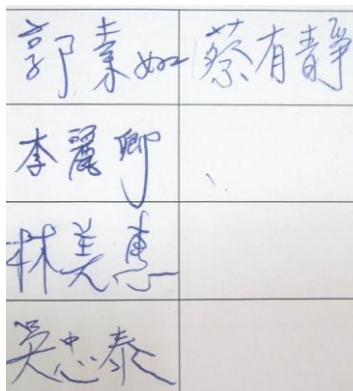 郭素如 蔡有靜
李麗卿
林美惠
吳忠泰